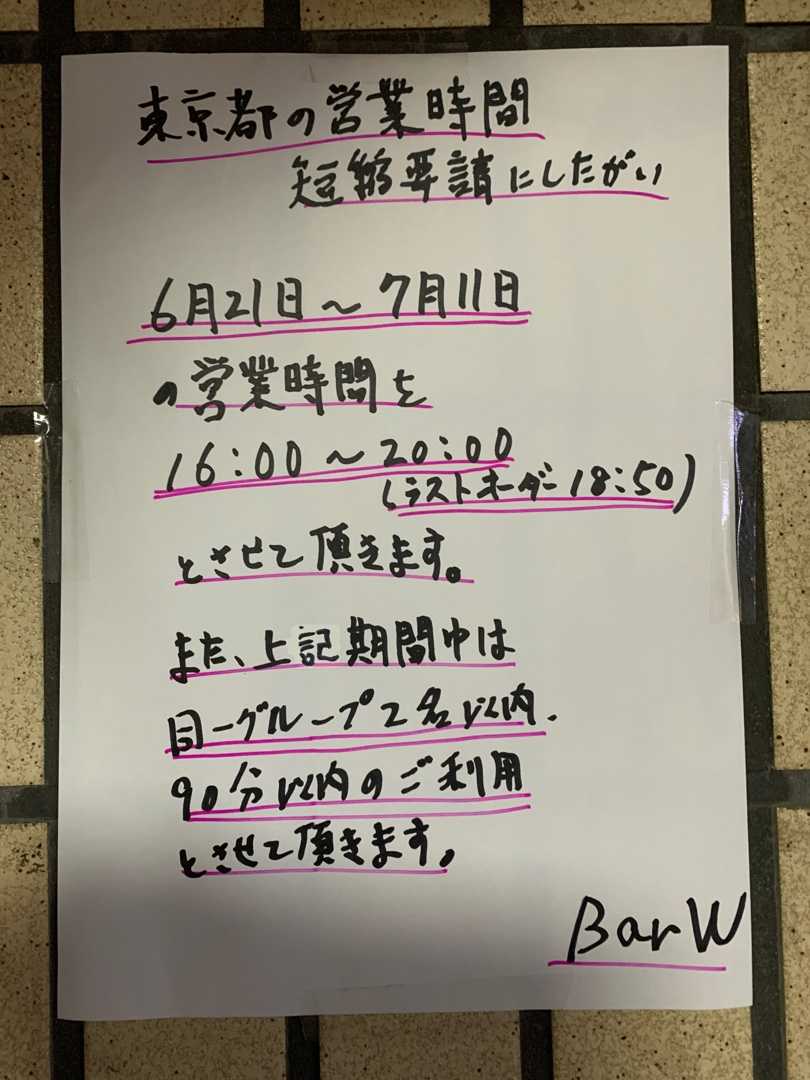 東京都の営業時間
短縮要請にしたがい
6月21日〜7月11日
の営業時間を
16:00〜20:00
(ラストオーダー18:50)
とさせて頂きます。
また、上記期間中は
同一グループ2名以内、
90分以内のご利用
とさせて頂きます。
Bar W